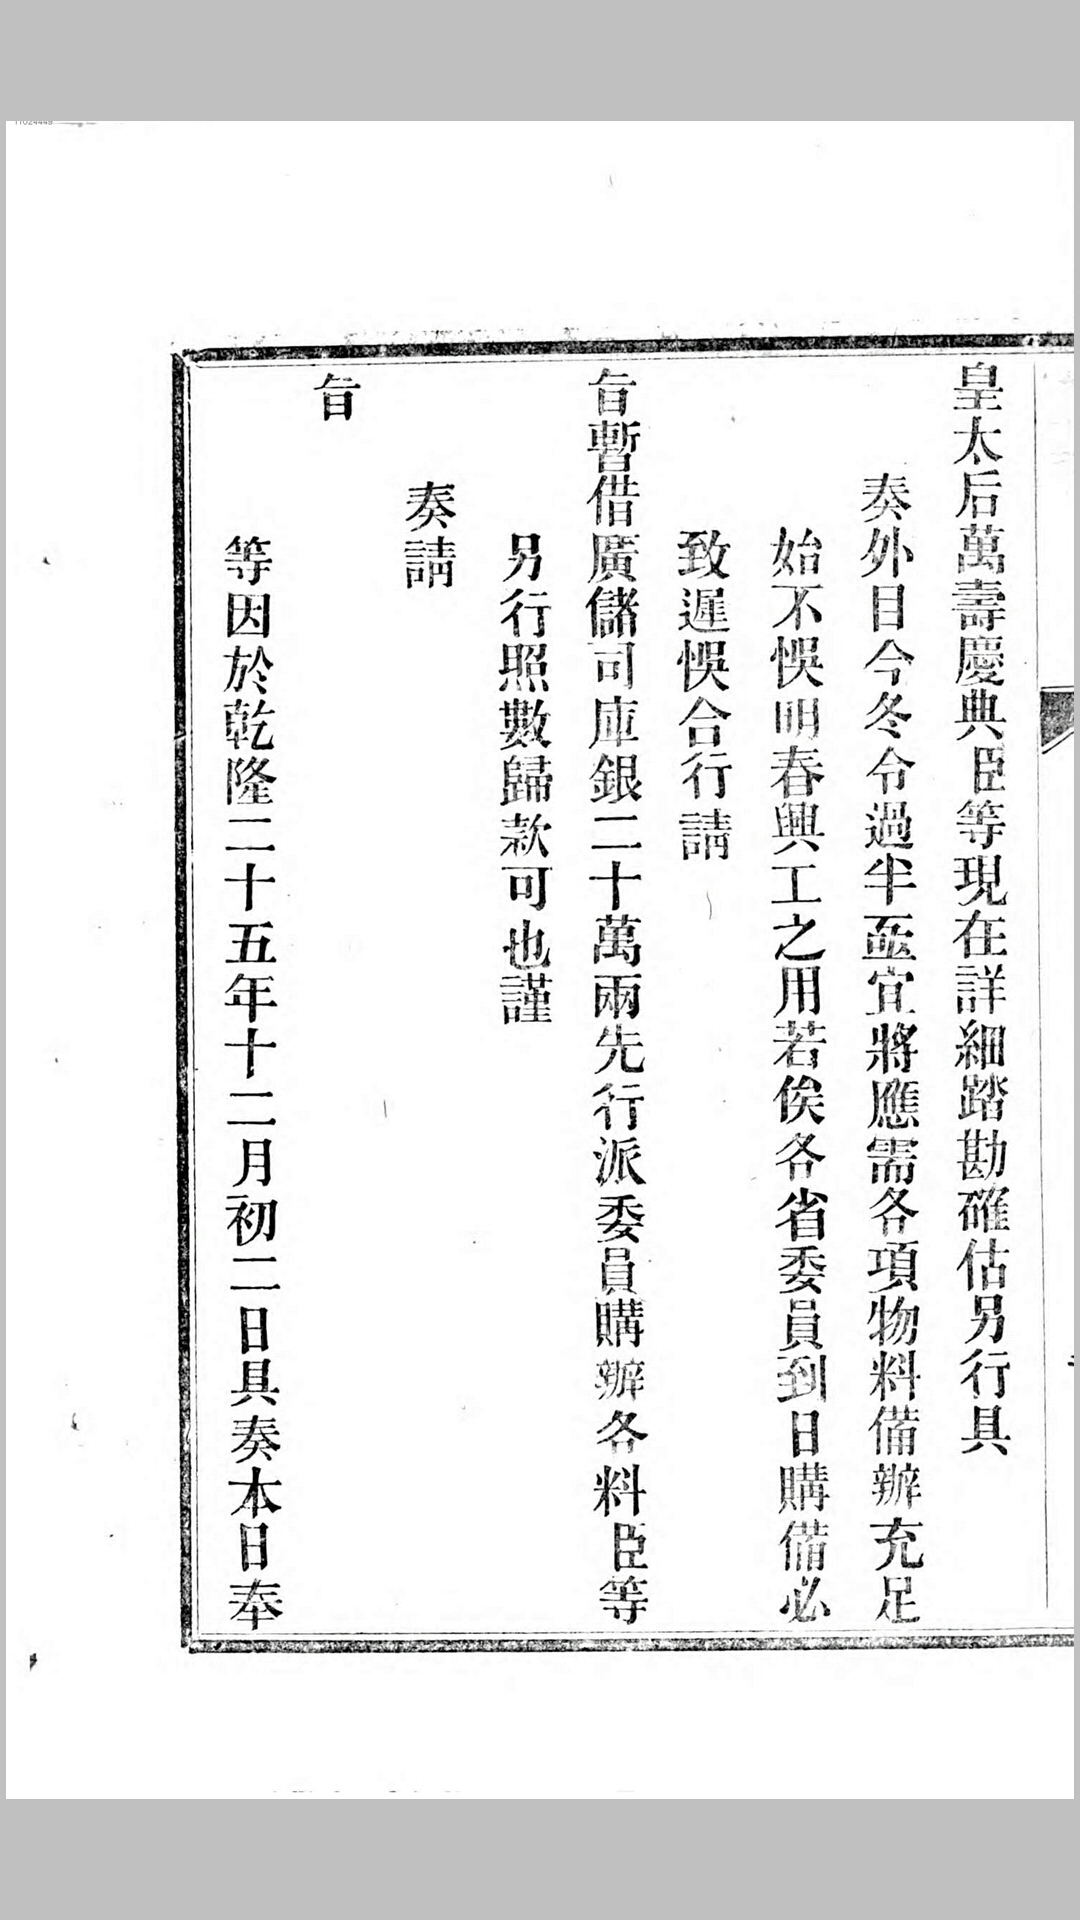 皇太后萬壽慶典臣等現在詳細踏勘確估另行具
奏外目今冬令過半亟宜將應需各項物料備辦充足
始不悞明春興工之用若俟各省委員到日購備必
致遲悞合行請
旨暫借廣儲司庫銀二十萬兩先行派委員購辦各料臣等
另行照數歸款可也謹
奏請
旨
等因於乾隆二十五年十二月初二日具奏本日奉